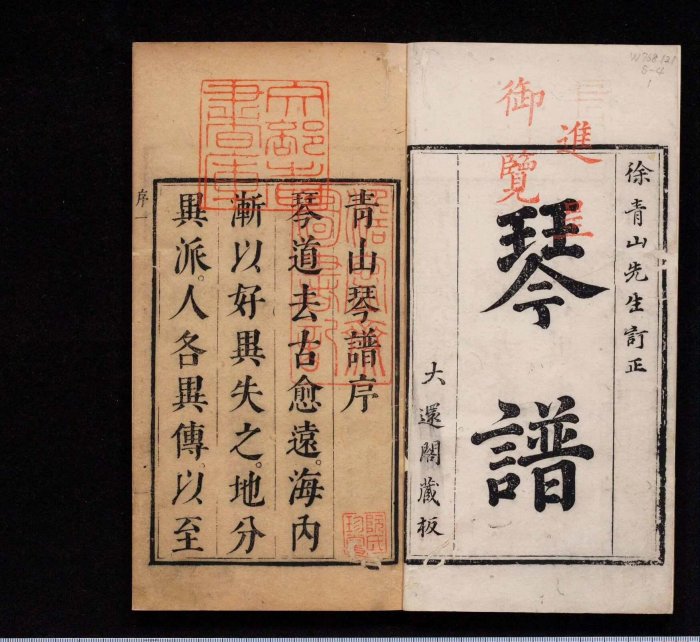 W768.121
8-4
1
進呈
御覽
徐青山先生訂正
琴譜
大還閣藏板
青山琴譜序
琴道去古愈遠。海內
漸以好異失之。地分
異派。人各異傳。以至
序一